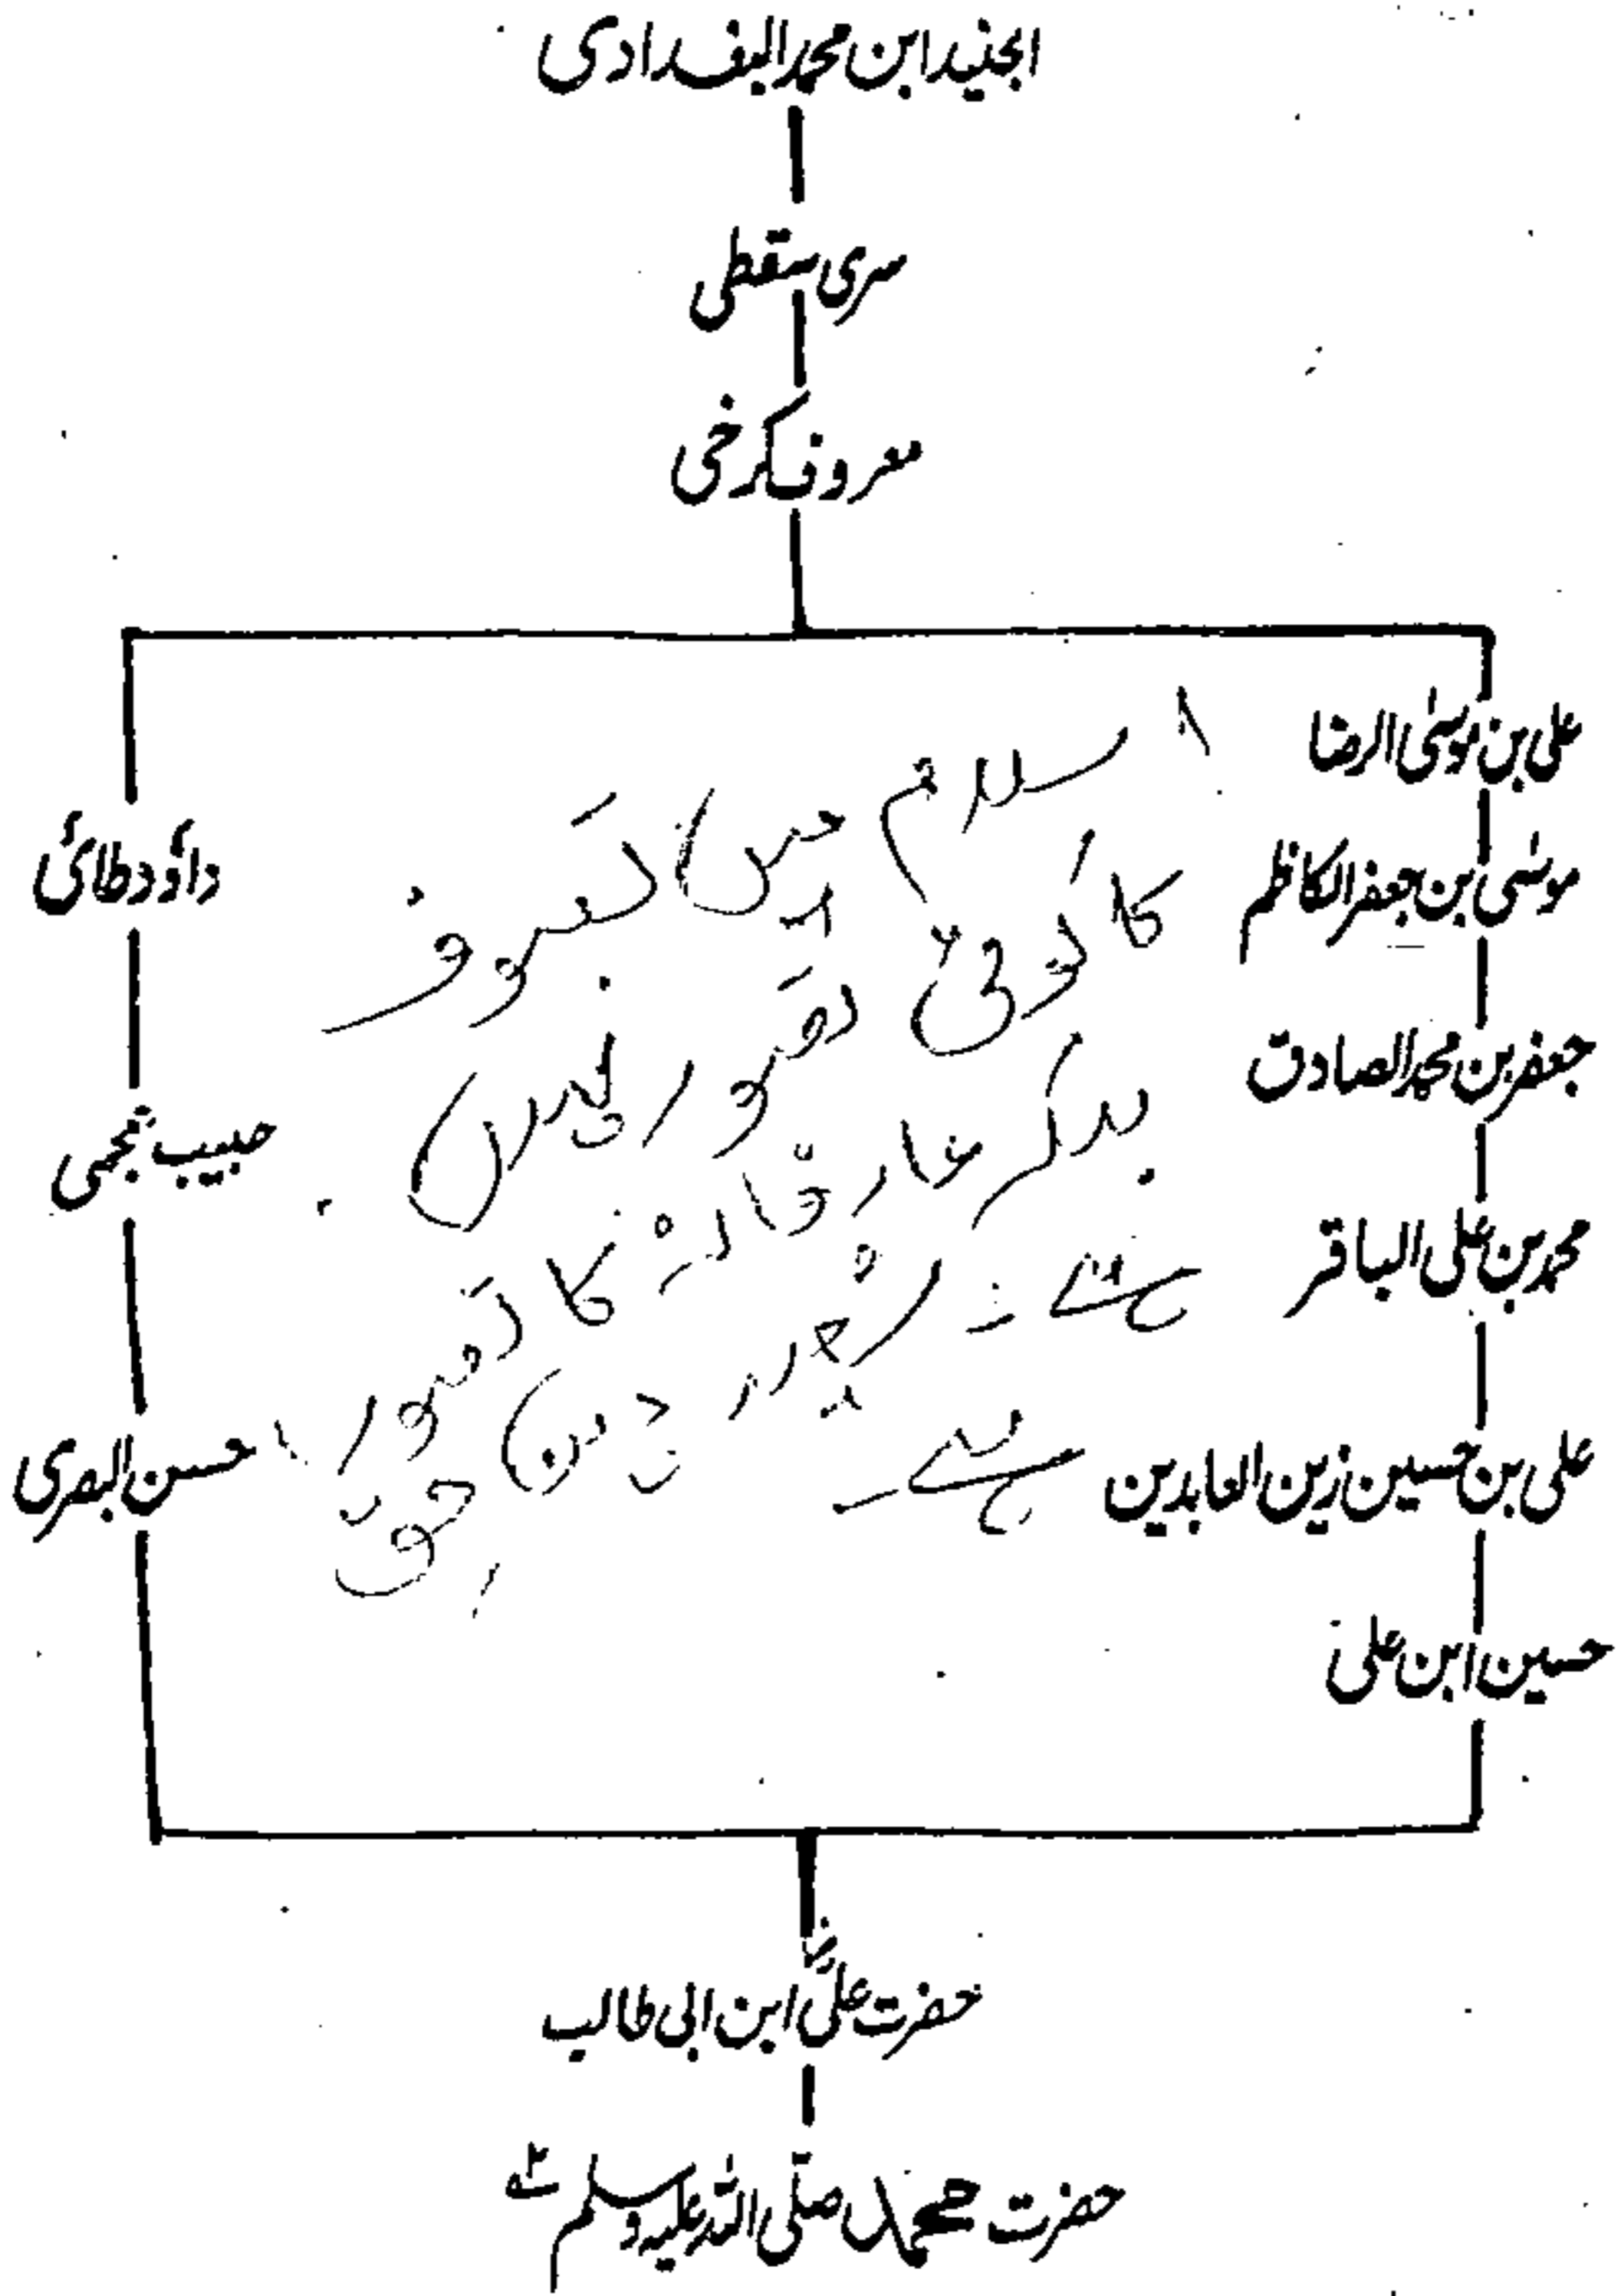 الجنید ابن محمد البغدادی
سری سقطی
معروف کرخی
علی بن موسیٰ الرضا
موسیٰ بن جعفر الکاظم
جعفر بن محمد الصادق
محمد بن علی الباقر
علی بن حسین زین العابدین
حسین ابن علی
داؤد طائی
حبیب عجمی
حسن البصری
اسلام میں تصوف
کا کوئی تصور نہیں۔
بلکہ عارفانہ کا تصور
ہے۔
ہے۔
حضرت علیؓ ابن ابی طالب
حضرت محمد صلی اللہ علیہ وسلم